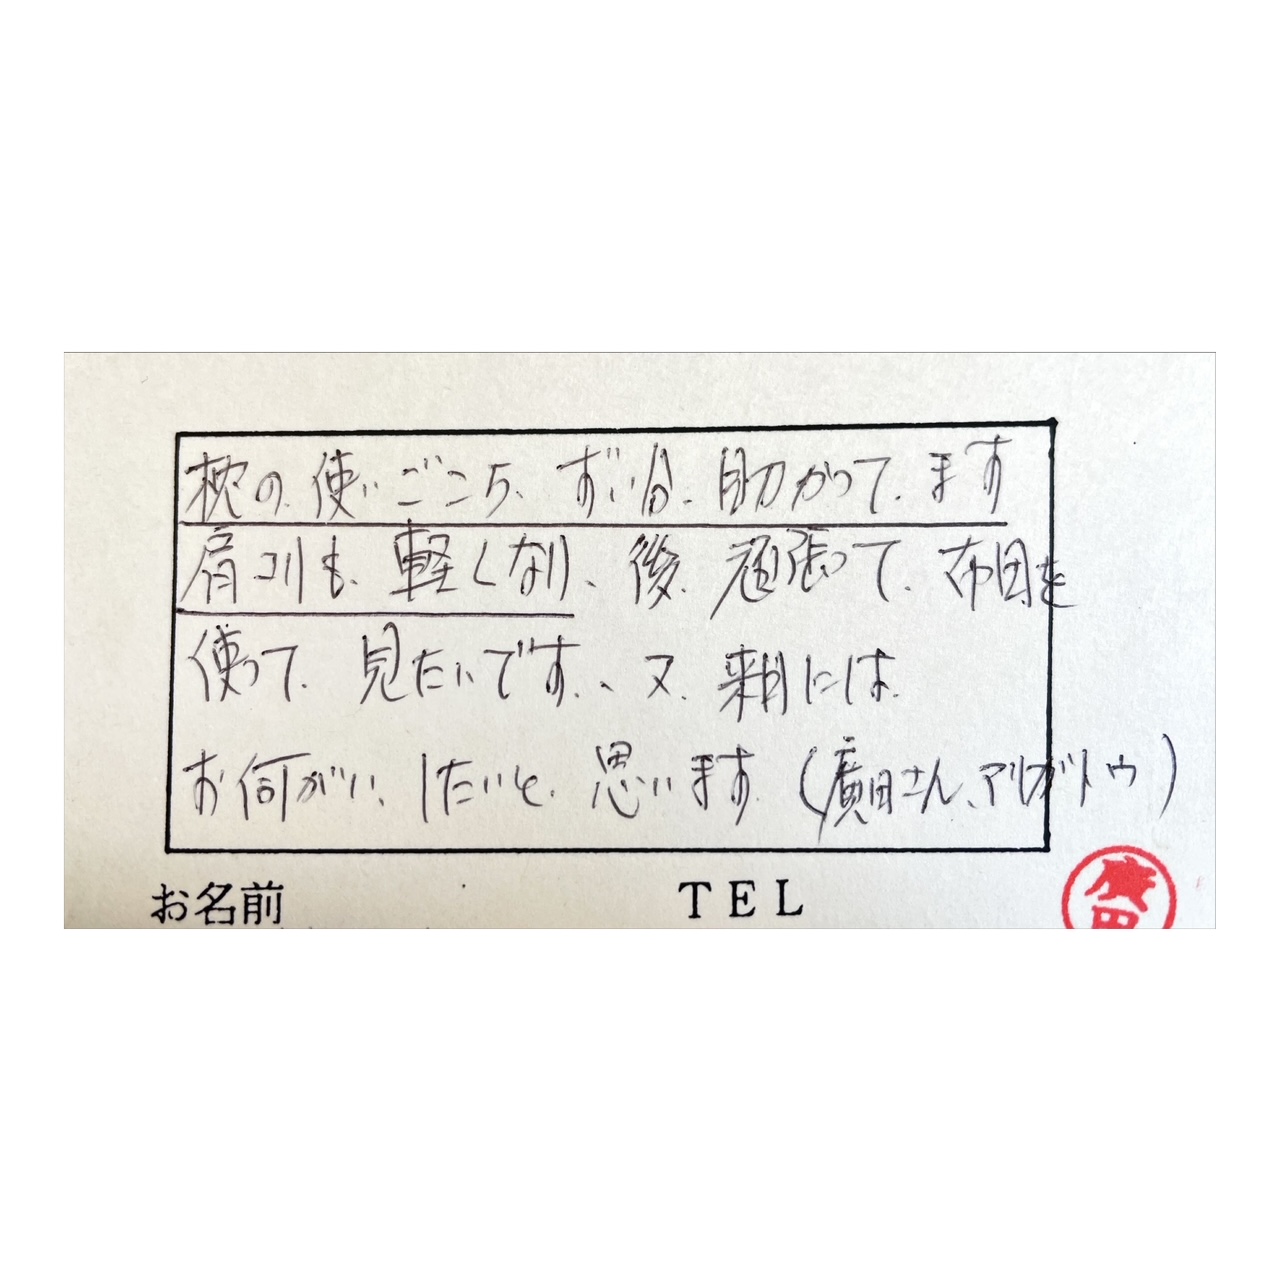 枕の使いごこち、ずい分、助かってます
肩コリも、軽くなり、後、頑張って、布団を
使って、見たいです、又、来月には、
お何がい、したいと、思います（廣田さん、アリガトウ）
お名前 TEL
廣田